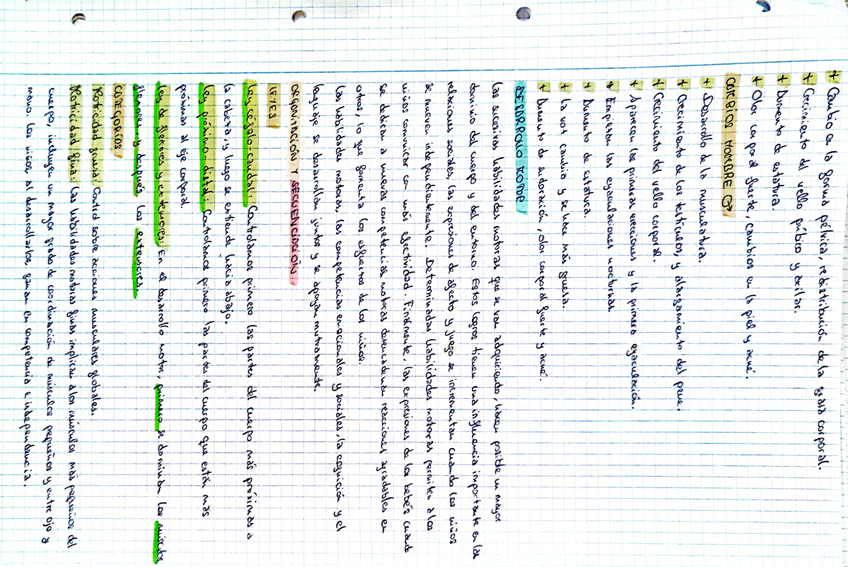 + Cambio en la forma pélvica, redistribución de la grasa corporal.
+ Crecimiento del vello púbico y axilar.
+ Aumento de estatura.
+ Olor corporal fuerte, cambios en la piel y acné.
CAMBIOS HOMBRE
+ Desarrollo de la musculatura.
+ Crecimiento de los testículos, y alargamiento del pene.
+ Crecimiento del vello corporal.
+ Aparecen las primeras erecciones y la primera eyaculación.
+ Empiezan las eyaculaciones nocturnas
+ Aumento de estatura.
+ La voz cambia y se hace más gruesa.
+ Aumento de sudoración, olor corporal fuerte y acné.
DESARROLLO MOTOR
Las sucesivas habilidades motoras que se van adquiriendo, hacen posible un mayor
dominio del cuerpo y del entorno. Estos logros tienen una influencia importante en las
relaciones sociales, las expresiones de afecto y juego se incrementan cuando los niños
se mueven independientemente. Determinadas habilidades motoras permiten a los
niños comunicar con más efectividad. Finalmente, las expresiones de los bebés cuando
se dedican a nuevas competencias motoras desencadenan reacciones agradables en
otros, lo que fomenta los esfuerzos de los niños.
Las habilidades motoras, las competencias emocionales y sociales, la cognición y el
lenguaje se desarrollan juntos y se apoyan mutuamente.
ORGANIZACIÓN Y SECUENCIACIÓN
LEYES
Ley céfalo-caudal: Controlamos primero las partes del cuerpo más próximas a
la cabeza, y luego se extiende hacia abajo.
Ley próximo-distal: Controlamos primero las partes del cuerpo que están más
próximas al eje corporal
Ley de flexores y extensores: En el desarrollo motor, primero se dominan los
flexores y después los extensores.
CATEGORÍAS
Motricidad gruesa: Control sobre acciones musculares globales.
Motricidad fina: Las habilidades motoras finas implican a los músculos más pequeños del
cuerpo, incluyen un mayor grado de coordinación de músculos pequeños y entre ojo a
mano. Los niños, al desarrollarlas ganan en competencia e independencia.